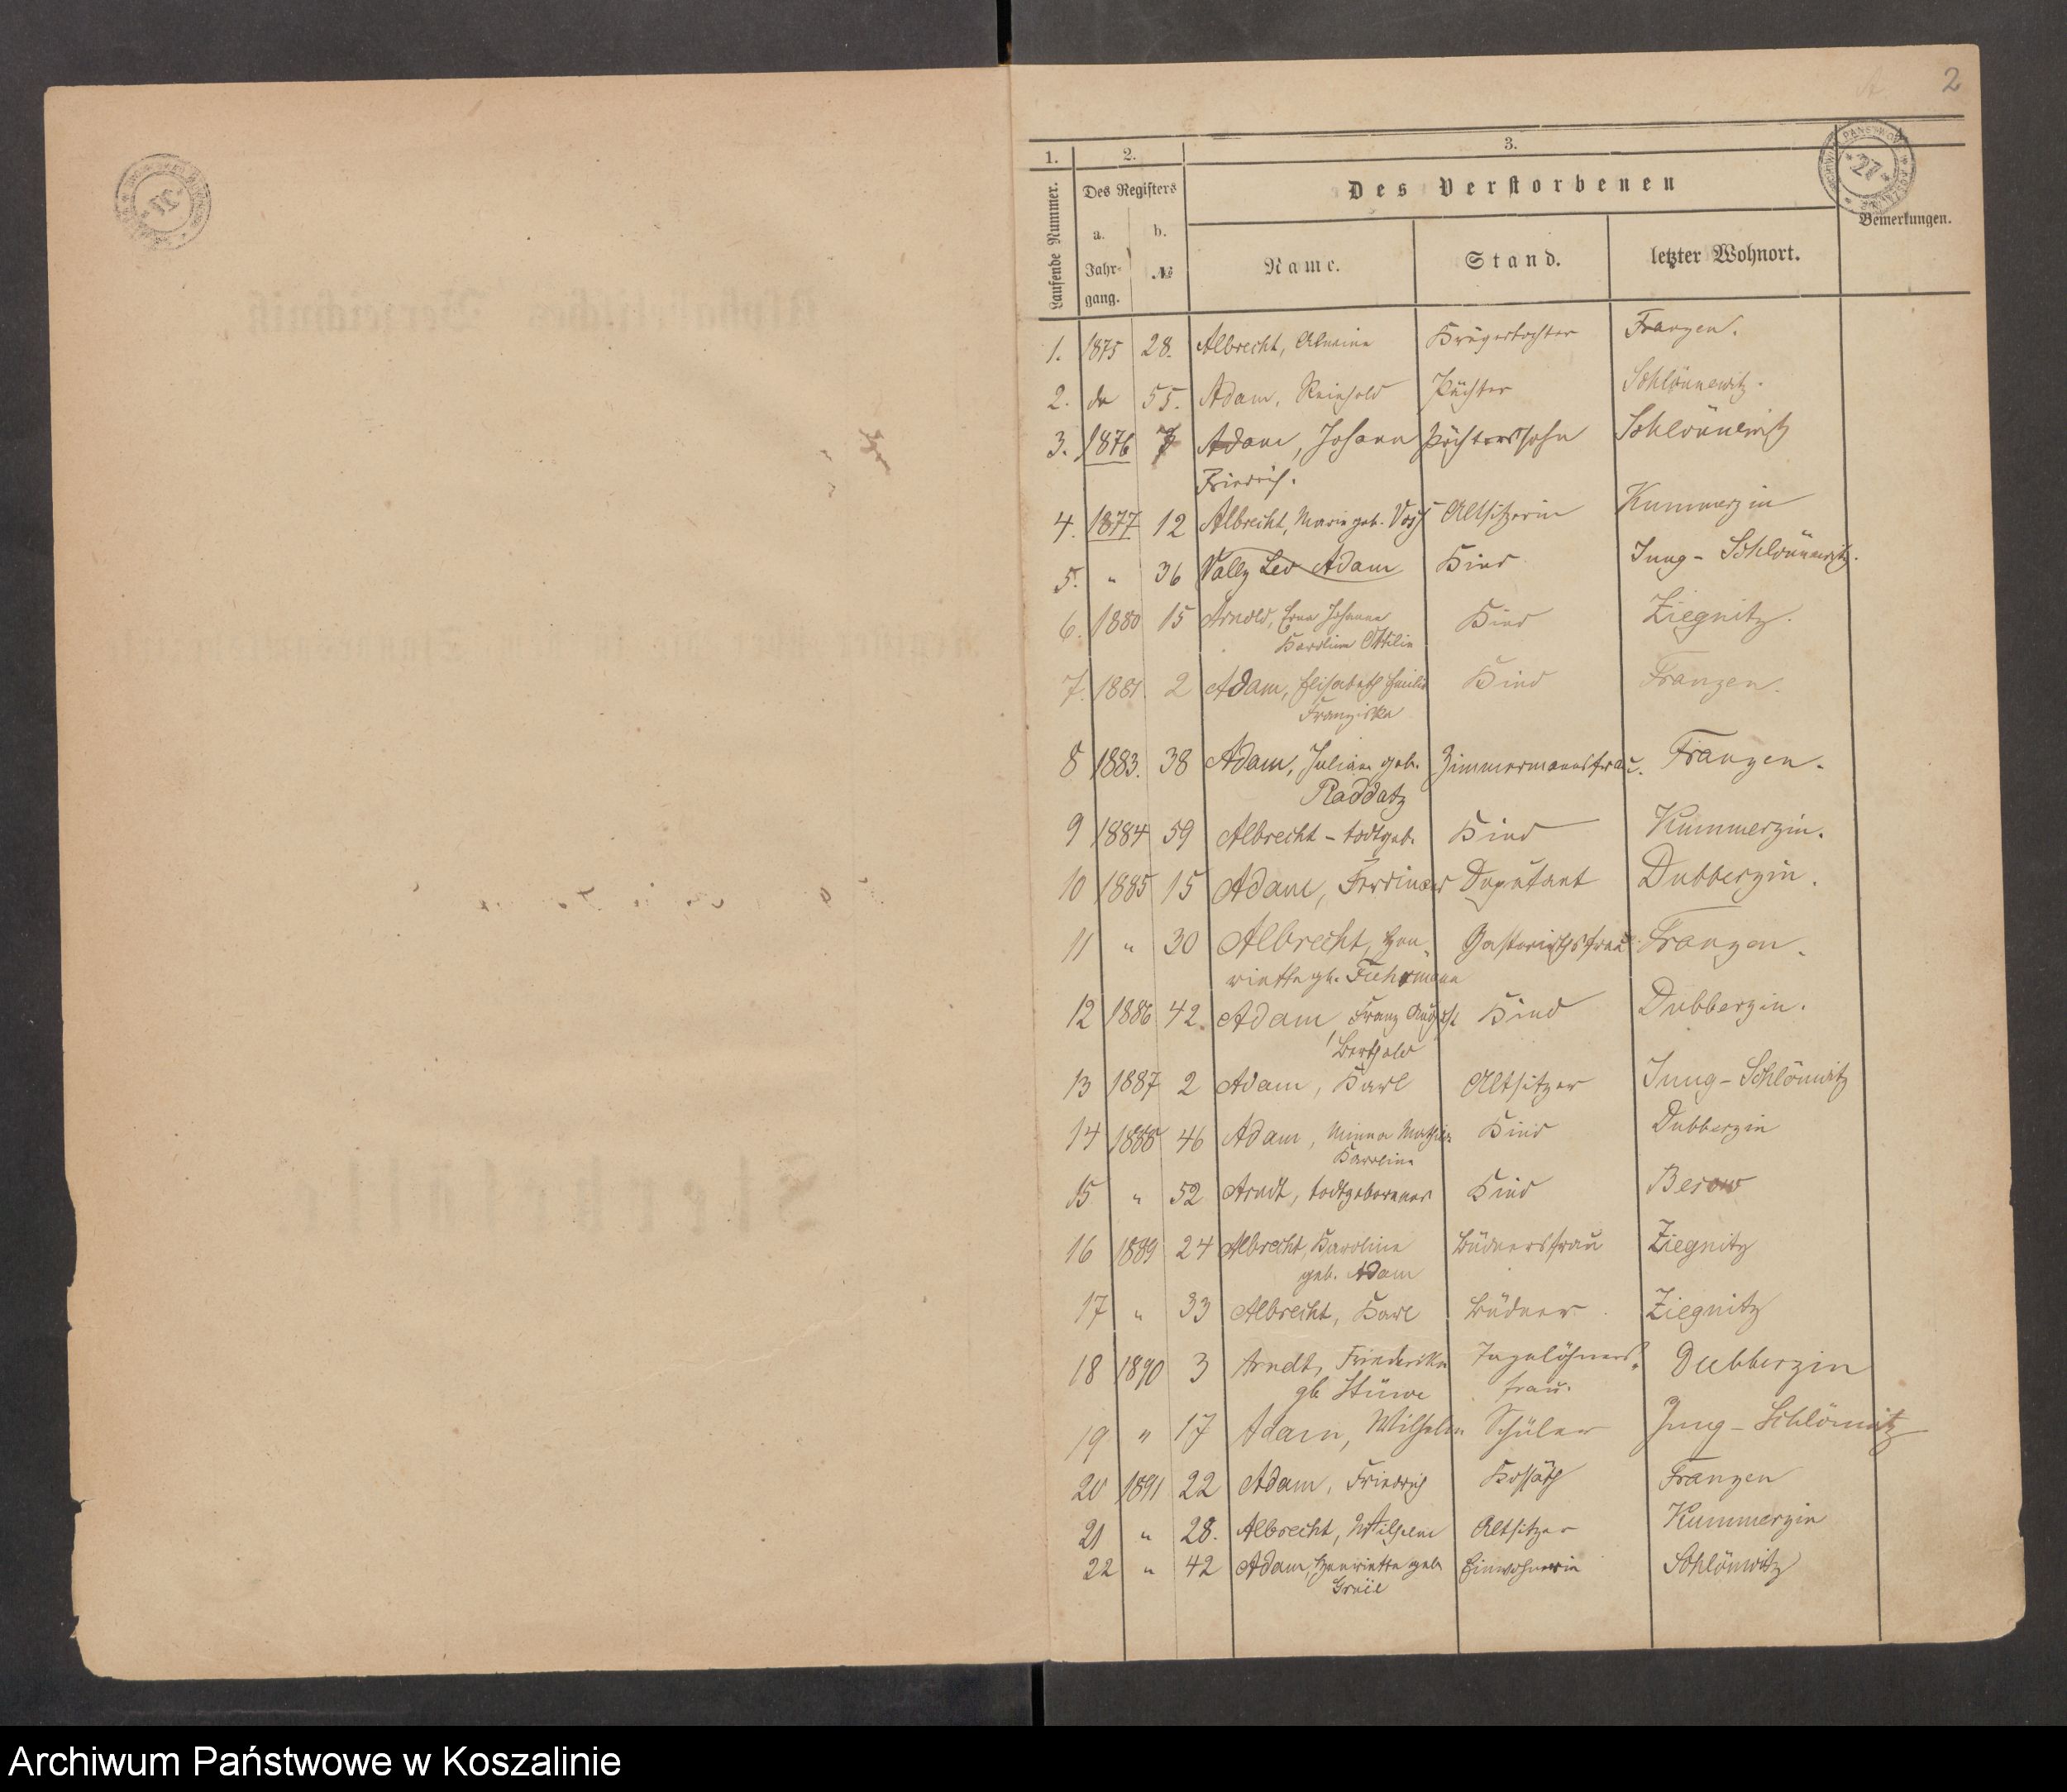 2
1. 2. 3.
Laufende Nummer. Des Registers Des Verstorbenen Bemerkungen.
a. Jahrgang. b. № Name. Stand. letzter Wohnort.
27
1. 1875 28. Albrecht, Alwine Krügertochter Franzen.
2. do 55. Adam, Reinhold Pächter Schlönnewitz.
3. 1876 7 Adam, Johann Pächterssohn Schlönnewitz
Friedrich.
4. 1877 12 Albrecht, Marie geb. Voss Altsitzerin Kummerzin
5. " 36 Vally Leo Adam Kind Jung-Schlönnwitz.
6. 1880 15 Arnold, Erna Johanna Kind Ziegnitz.
Karoline Ottilie
7. 1881. 2 Adam, Elisabeth Emilie Kind Franzen.
Franziska
8 1883. 38 Adam, Juliane geb. Zimmermannsfrau. Franzen.
Raddatz
9 1884 59 Albrecht - todtgeb. Kind Kummerzin.
10 1885 15 Adam, Ferdinand Deputant Dubberzin.
11 " 30 Albrecht, Hen- Gastwirthsfrau Franzen.
riette gb. Fuhrmann
12 1886 42. Adam, Franz August Kind Dubberzin.
Berthold
13 1887 2 Adam, Karl Altsitzer Jung-Schlönwitz
14 1888 46 Adam, Minna Mathilde Kind Dubberzin
Karoline
15 " 52 Arndt, todtgeborenes Kind Besow
16 1889 24 Albrecht, Karoline Büdnersfrau Ziegnitz
geb. Adam
17 " 33 Albrecht, Karl Büdner Ziegnitz
18 1890 3 Arndt, Friederike Tagelöhners- Dubberzin
gb Stüwe frau.
19 " 17 Adam, Wilhelm Schüler Jung-Schlönwitz
20 1891 22 Adam, Friedrich Kossäth Franzen
21 " 28. Albrecht, Wilhelm Altsitzer Kummerzin
22 " 42 Adam, Henriette geb. Einwohnerin Schlönwitz
Archiwum Państwowe w Koszalinie